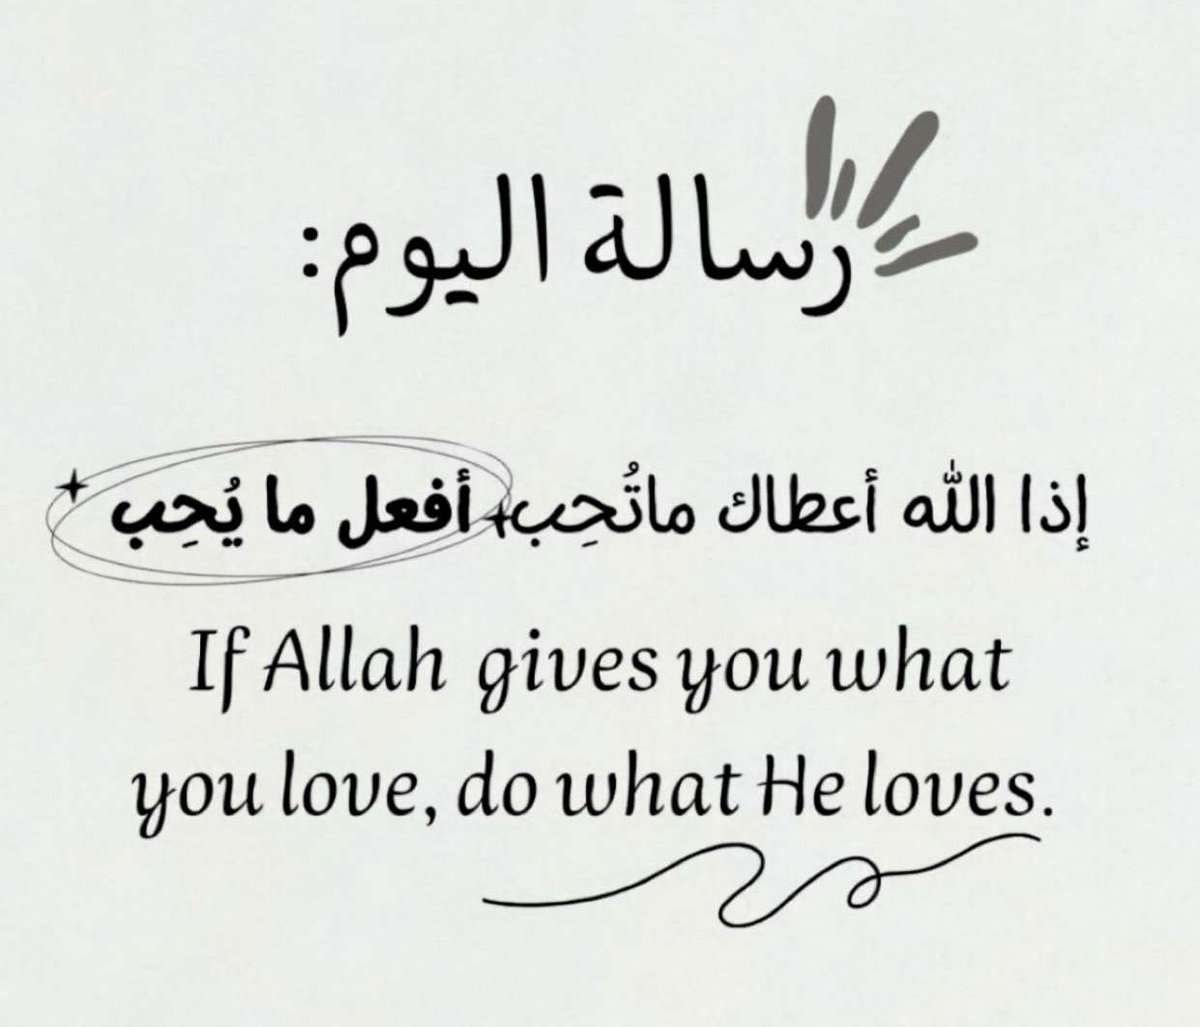 رسالة اليوم:
إذا الله أعطاك ماتُحِب، أفعل ما يُحِب
If Allah gives you what
you love, do what He loves.